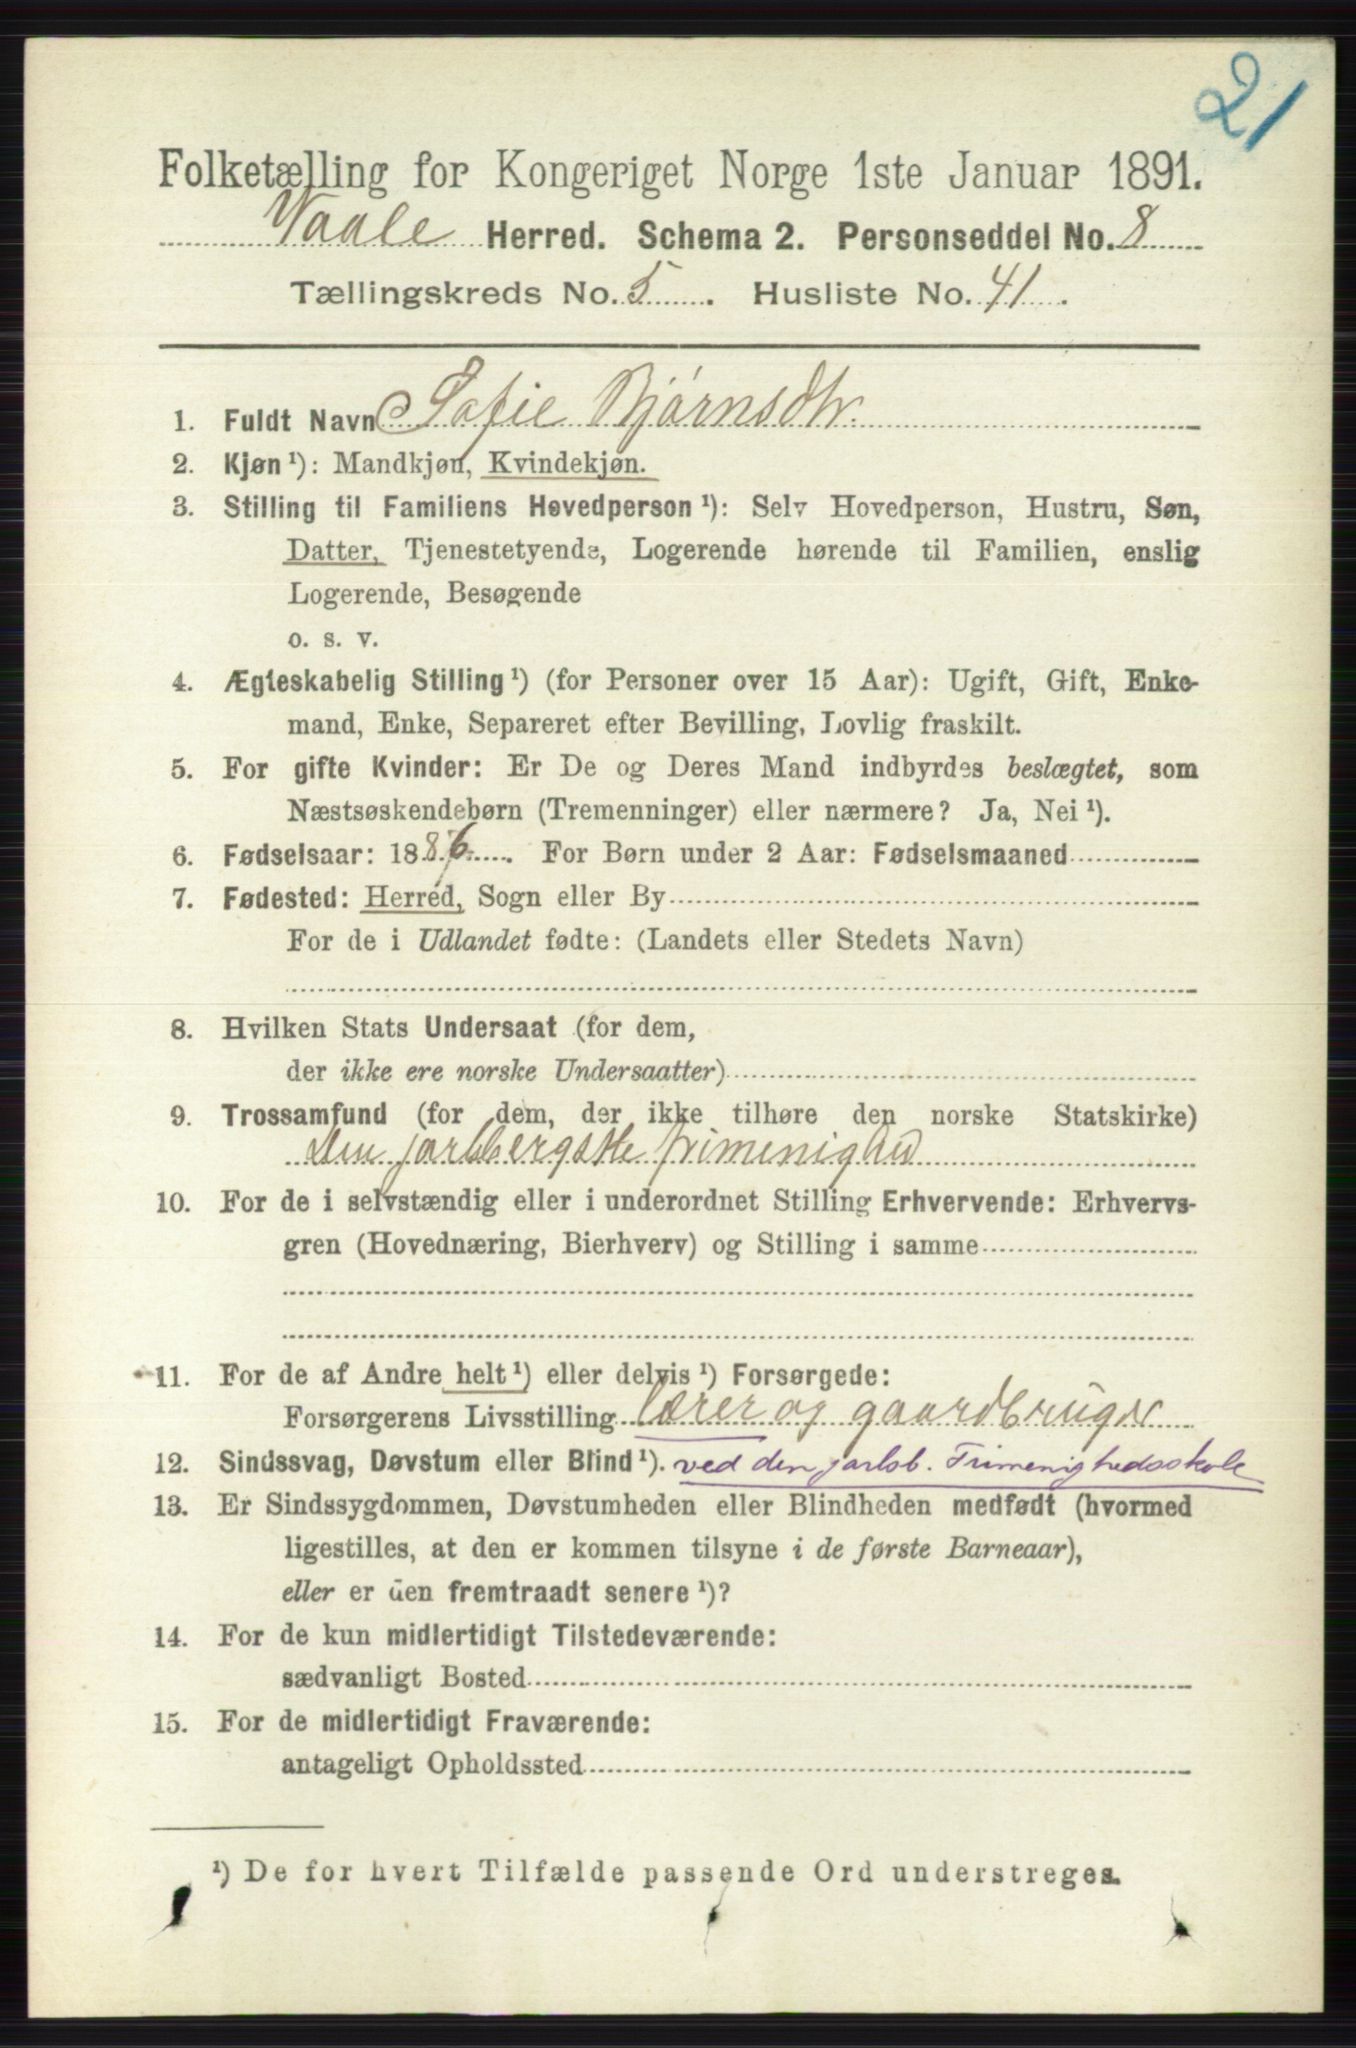 21
Folketælling for Kongeriget Norge 1ste Januar 1891.
Vaale Herred. Schema 2. Personseddel No. 8
Tællingskreds No. 5. Husliste No. 41.
1. Fuldt Navn Sofie Bjørnsdtr.
2. Kjøn ¹): Mandkjøn, Kvindekjøn.
3. Stilling til Familiens Hovedperson ¹): Selv Hovedperson, Hustru, Søn,
Datter, Tjenestetyende, Logerende hørende til Familien, enslig
Logerende, Besøgende
o. s. v.
4. Ægteskabelig Stilling ¹) (for Personer over 15 Aar): Ugift, Gift, Enke-
mand, Enke, Separeret efter Bevilling, Lovlig fraskilt.
5. For gifte Kvinder: Er De og Deres Mand indbyrdes beslægtet, som
Næstsøskendebørn (Tremenninger) eller nærmere? Ja, Nei ¹).
6. Fødselsaar: 1886. For Børn under 2 Aar: Fødselsmaaned
7. Fødested: Herred, Sogn eller By
For de i Udlandet fødte: (Landets eller Stedets Navn)
8. Hvilken Stats Undersaat (for dem,
der ikke ere norske Undersaatter)
9. Trossamfund (for dem, der ikke tilhøre den norske Statskirke)
den jarlsbergske frimenighed
10. For de i selvstændig eller i underordnet Stilling Erhvervende: Erhvervs-
gren (Hovednæring, Bierhverv) og Stilling i samme
11. For de af Andre helt ¹) eller delvis ¹) Forsørgede:
Forsørgerens Livsstilling lærer og gaardbruger
12. Sindssvag, Døvstum eller Blind ¹). ved den jarlsb. Frimenighedsskole
13. Er Sindssygdommen, Døvstumheden eller Blindheden medfødt (hvormed
ligestilles, at den er kommen tilsyne i de første Barneaar),
eller er den fremtraadt senere ¹)?
14. For de kun midlertidigt Tilstedeværende:
sædvanligt Bosted
15. For de midlertidigt Fraværende:
antageligt Opholdssted
¹) De for hvert Tilfælde passende Ord understreges.